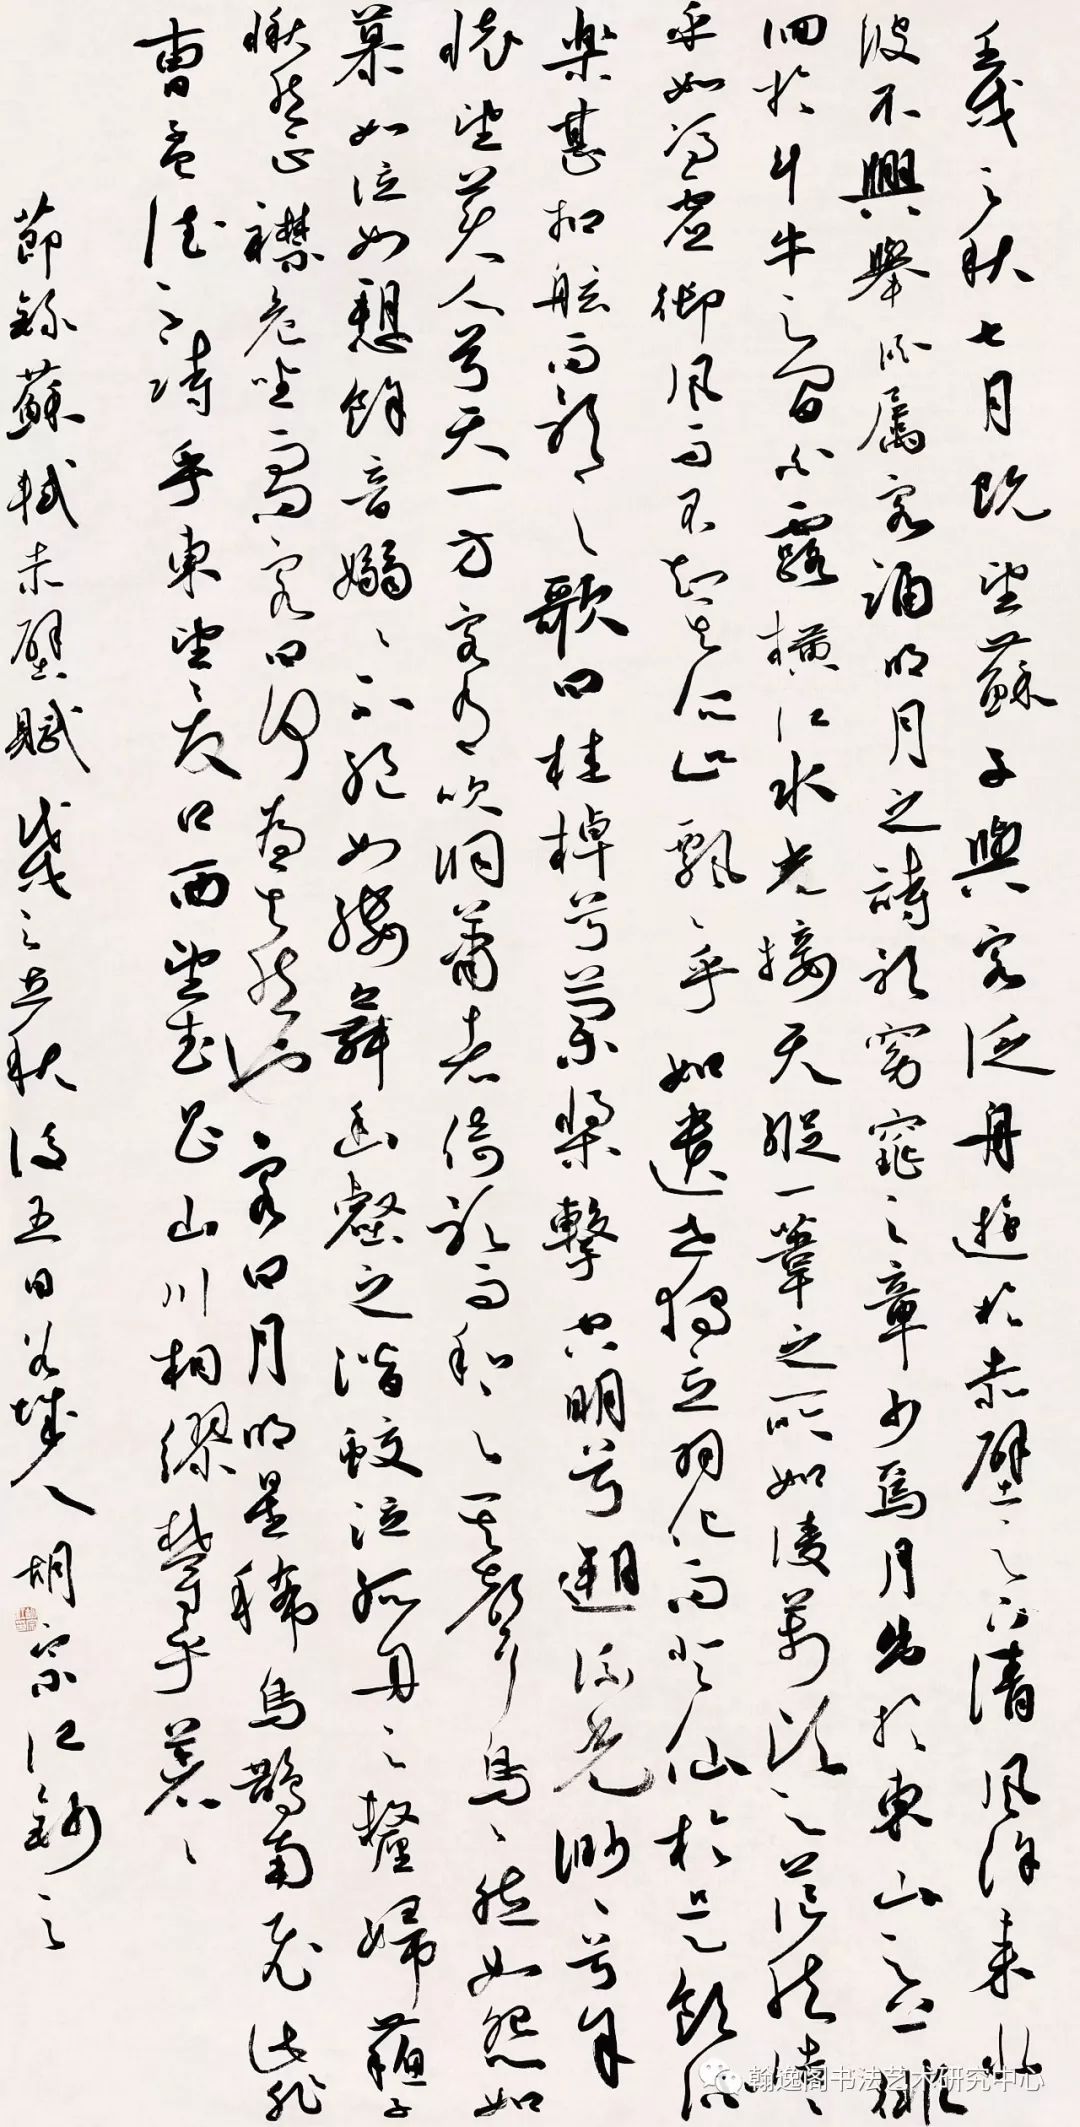 壬戌之秋七月既望蘇子與客泛舟遊於赤壁之下清風徐來水
波不興舉酒属客誦明月之詩歌窈窕之章少焉月出於東山之上徘
徊於斗牛之間白露橫江水光接天縱一葦之所如凌萬頃之茫然浩浩
乎如馮虛御風而不知其所止飄飄乎如遺世獨立羽化而登仙於是飲酒
樂甚扣舷而歌之歌曰桂棹兮蘭槳擊空明兮遡流光渺渺兮予
懷望美人兮天一方客有吹洞簫者倚歌而和之其聲嗚嗚然如怨如
慕如泣如愬餘音嫋嫋不絕如縷舞幽壑之潛蛟泣孤舟之嫠婦蘇子
愀然正襟危坐而問客曰何為其然也客曰月明星稀烏鵲南飛此非
曹孟德之詩乎東望夏口西望武昌山川相繆鬱乎蒼蒼
節錄蘇軾赤壁賦 戊戌之立秋後五日城人胡宗江鈔之
翰逸阁书法艺术研究中心